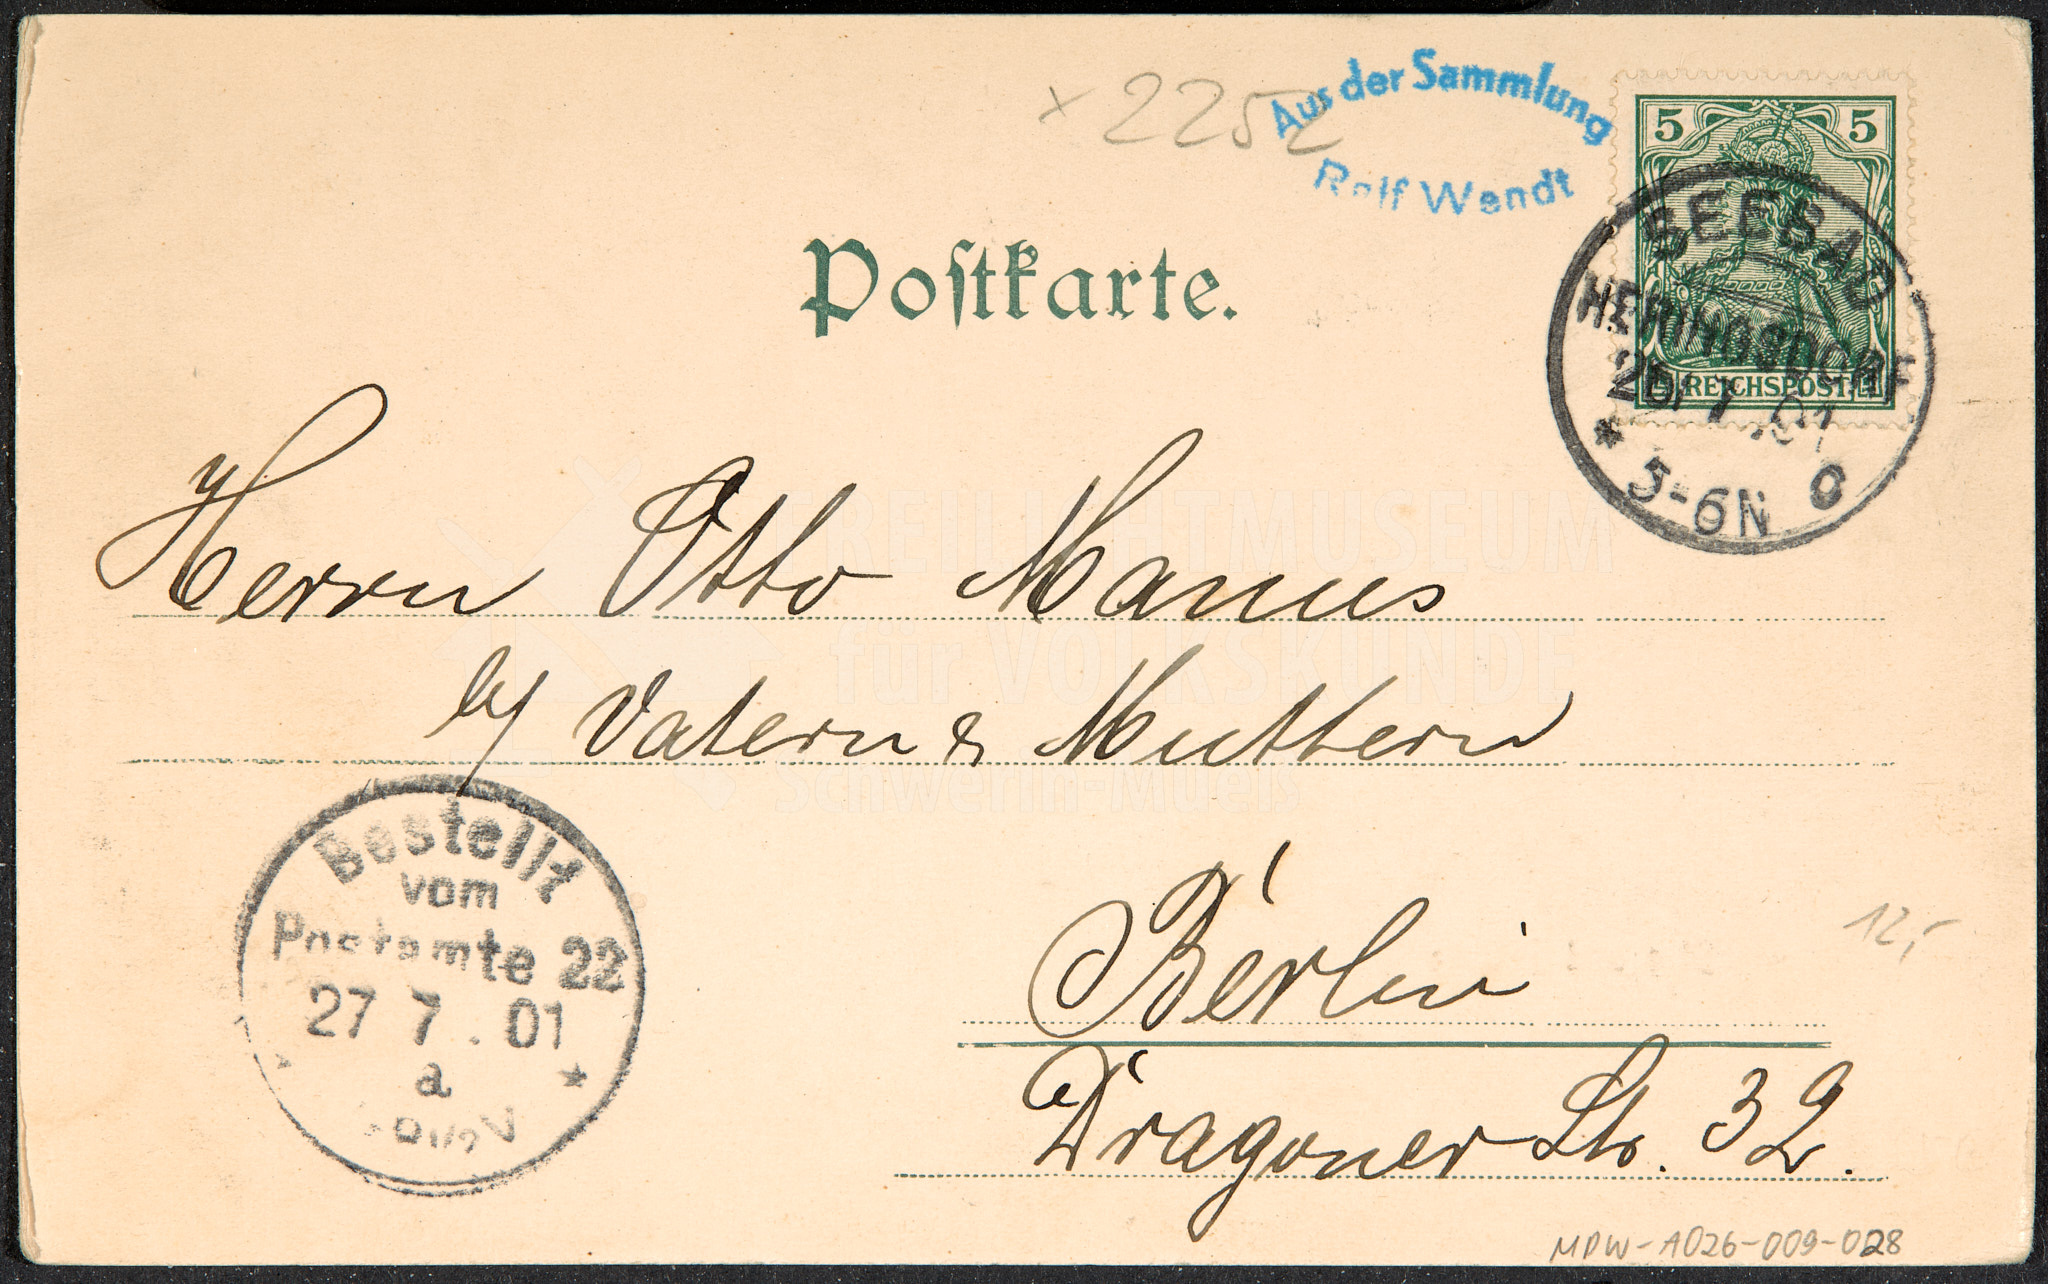 × 2252
Aus der Sammlung
Rolf Wendt
5 5
REICHSPOST
SEEBAD
HERINGSDORF
7.01
* 5-6N c
Postkarte.
Herrn Otto Manus
b/ Vatern & Muttern
Berlin
Dragoner Str. 32.
Bestellt
vom
Postamte 22
27 7.01
a
*
12,-
MPW-A026-009-028
FREILICHTMUSEUM
für VOLKSKUNDE
Schwerin-Mueß